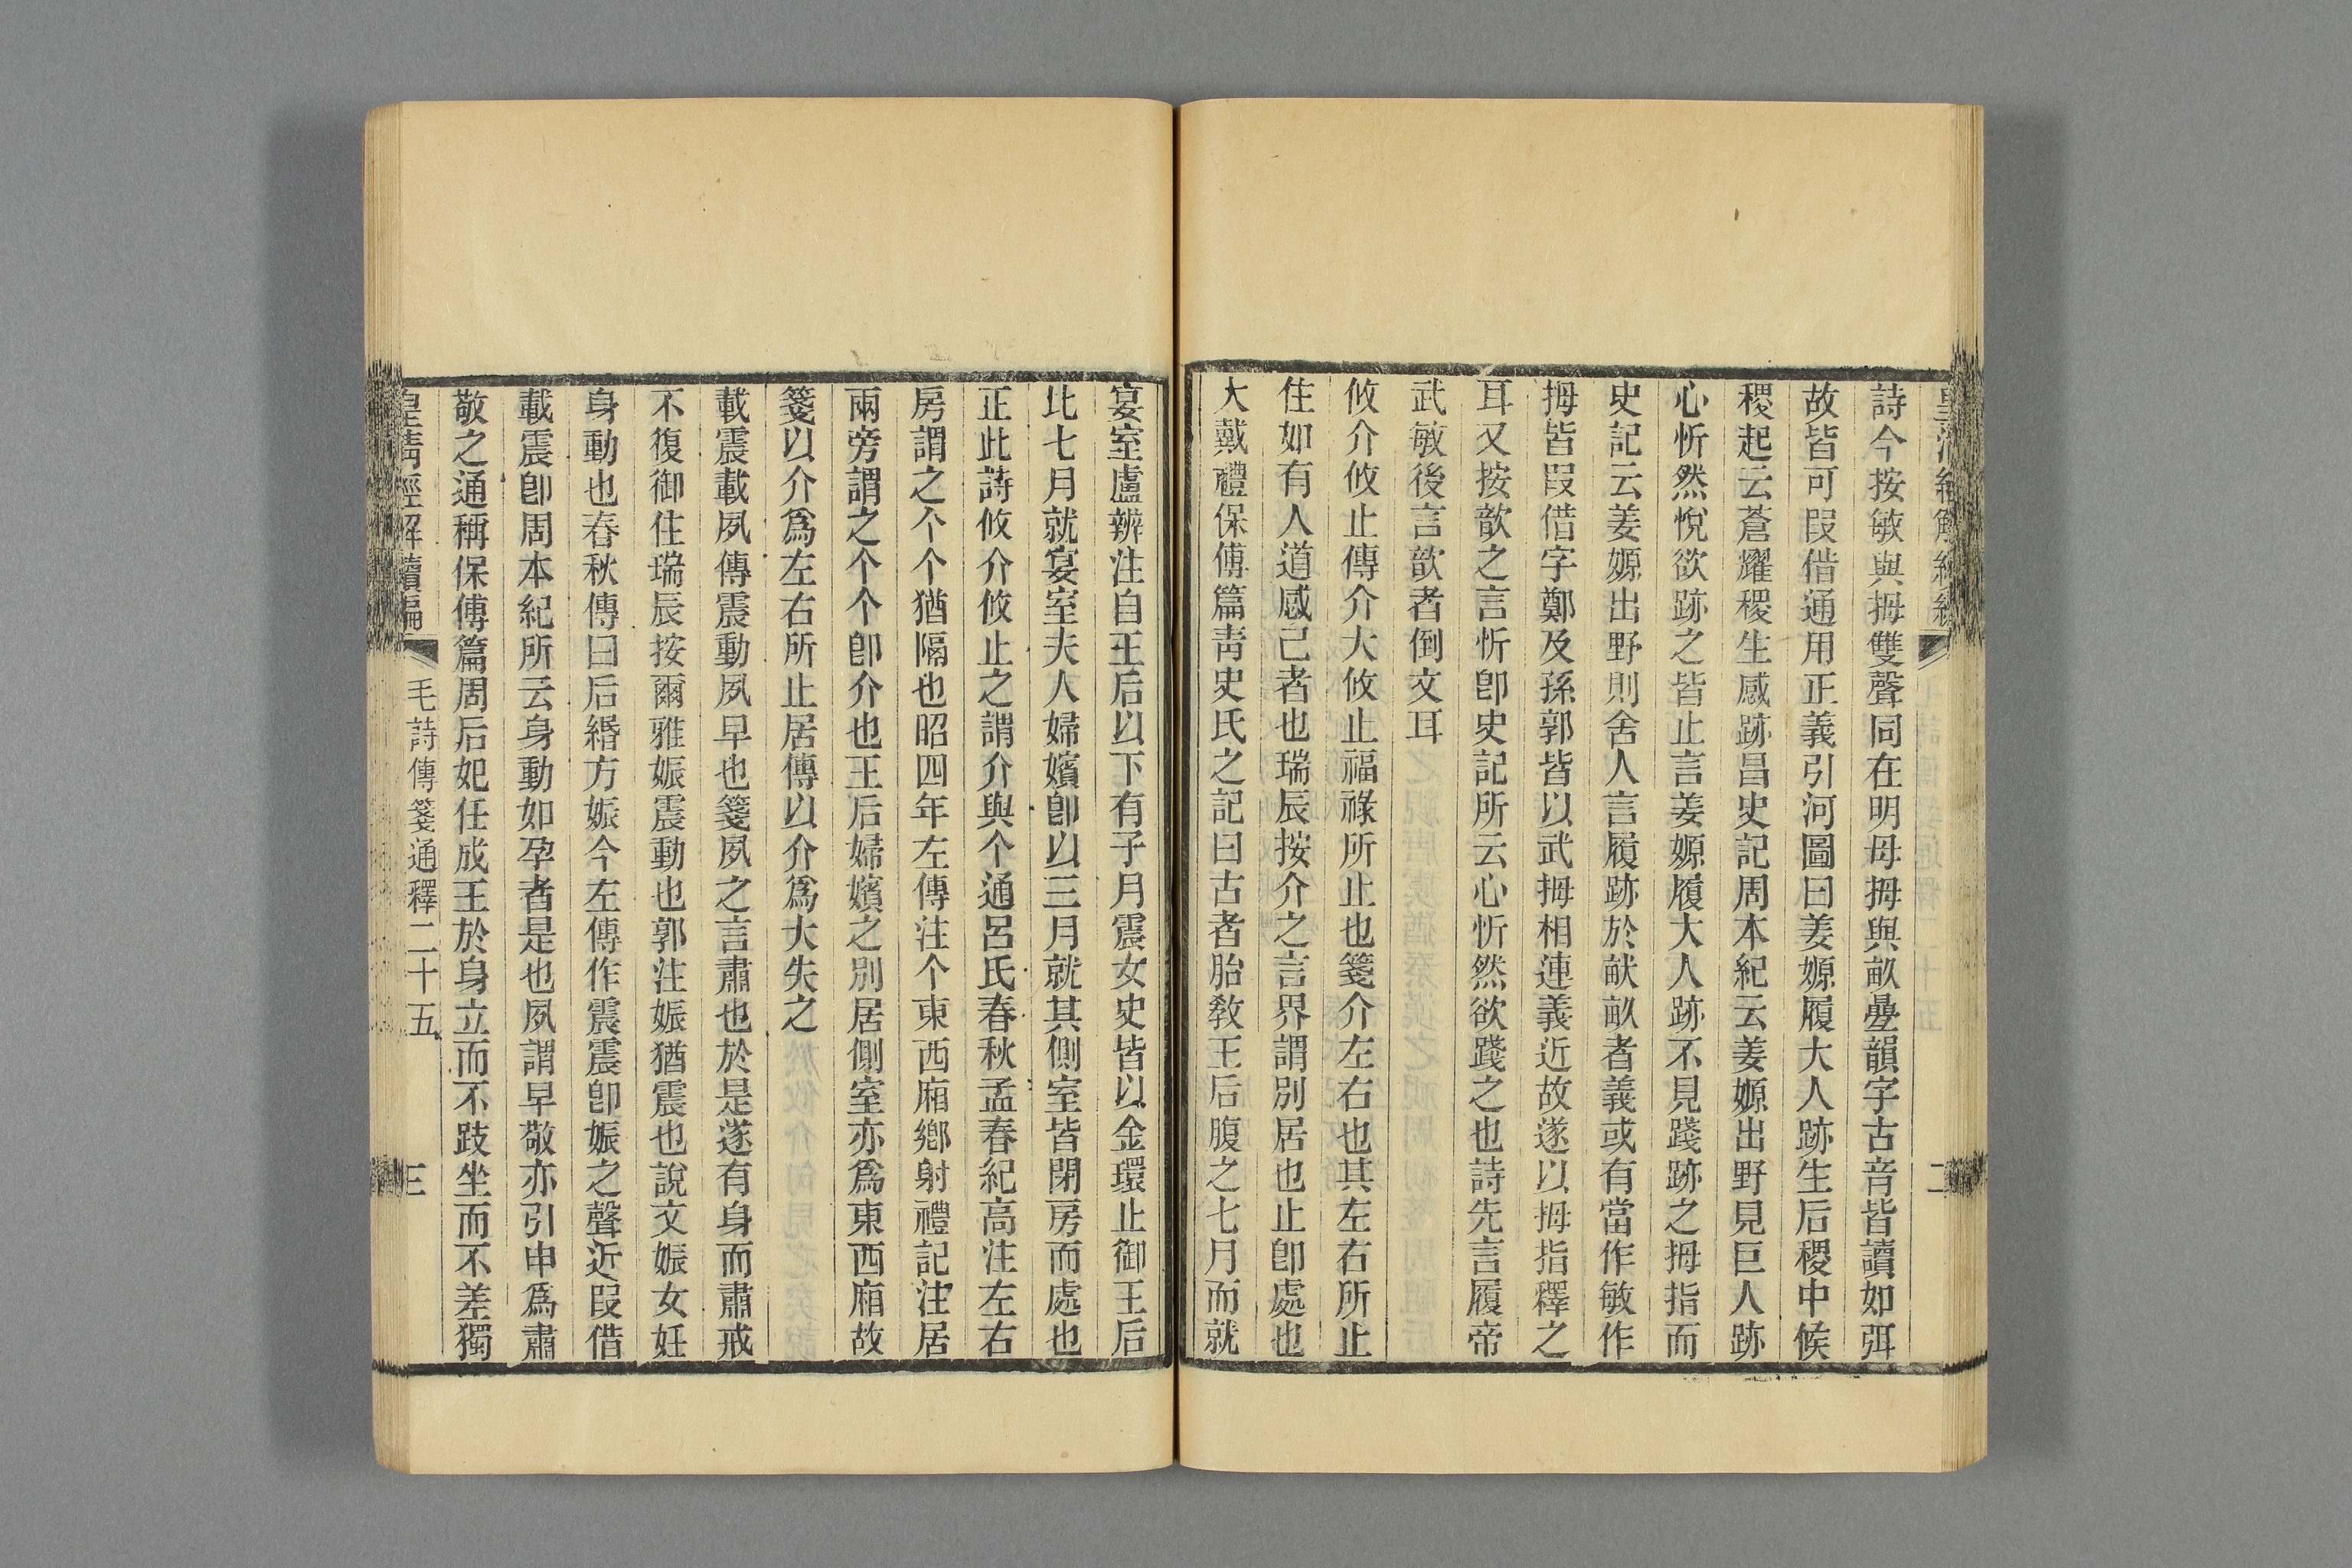 詩今按敏與拇雙聲同在明母拇與畝疊韻字古音皆讀如弭
故皆可叚借通用正義引河圖曰姜嫄履大人跡生后稷中候
稷起云蒼耀稷生感跡昌史記周本紀云姜嫄出野見巨人跡
心忻然悅欲跡之皆止言姜嫄履大人跡不見踐跡之拇指而
史記云姜嫄出野則舍人言履跡於畎畝者義或有當作敏作
拇皆叚借字鄭及孫郭皆以武拇相連義近故遂以拇指釋之
耳又按歆之言忻卽史記所云心忻然欲踐之也詩先言履帝
武敏後言歆者倒文耳
攸介攸止傳介大攸止福祿所止也箋介左右也其左右所止
住如有人道感己者也瑞辰按介之言界謂別居也止卽處也
大戴禮保傅篇靑史氏之記曰古者胎敎王后腹之七月而就
宴室盧辨注自王后以下有子月震女史皆以金環止御王后
比七月就宴室夫人婦嬪卽以三月就其側室皆閉房而處也
正此詩攸介攸止之謂介與个通呂氏春秋孟春紀高注左右
房謂之个个猶隔也昭四年左傳注个東西廂鄕射禮記注居
兩旁謂之个个卽介也王后婦嬪之別居側室亦爲東西廂故
箋以介爲左右所止居傳以介爲大失之
載震載夙傳震動夙早也箋夙之言肅也於是遂有身而肅戒
不復御住瑞辰按爾雅娠震動也郭注娠猶震也說文娠女妊
身動也春秋傳曰后緡方娠今左傳作震震卽娠之聲近叚借
載震卽周本紀所云身動如孕者是也夙謂早敬亦引申爲肅
敬之通稱保傅篇周后妃任成王於身立而不跂坐而不差獨
皇淸經解續編
毛詩傳箋通釋二十五
三